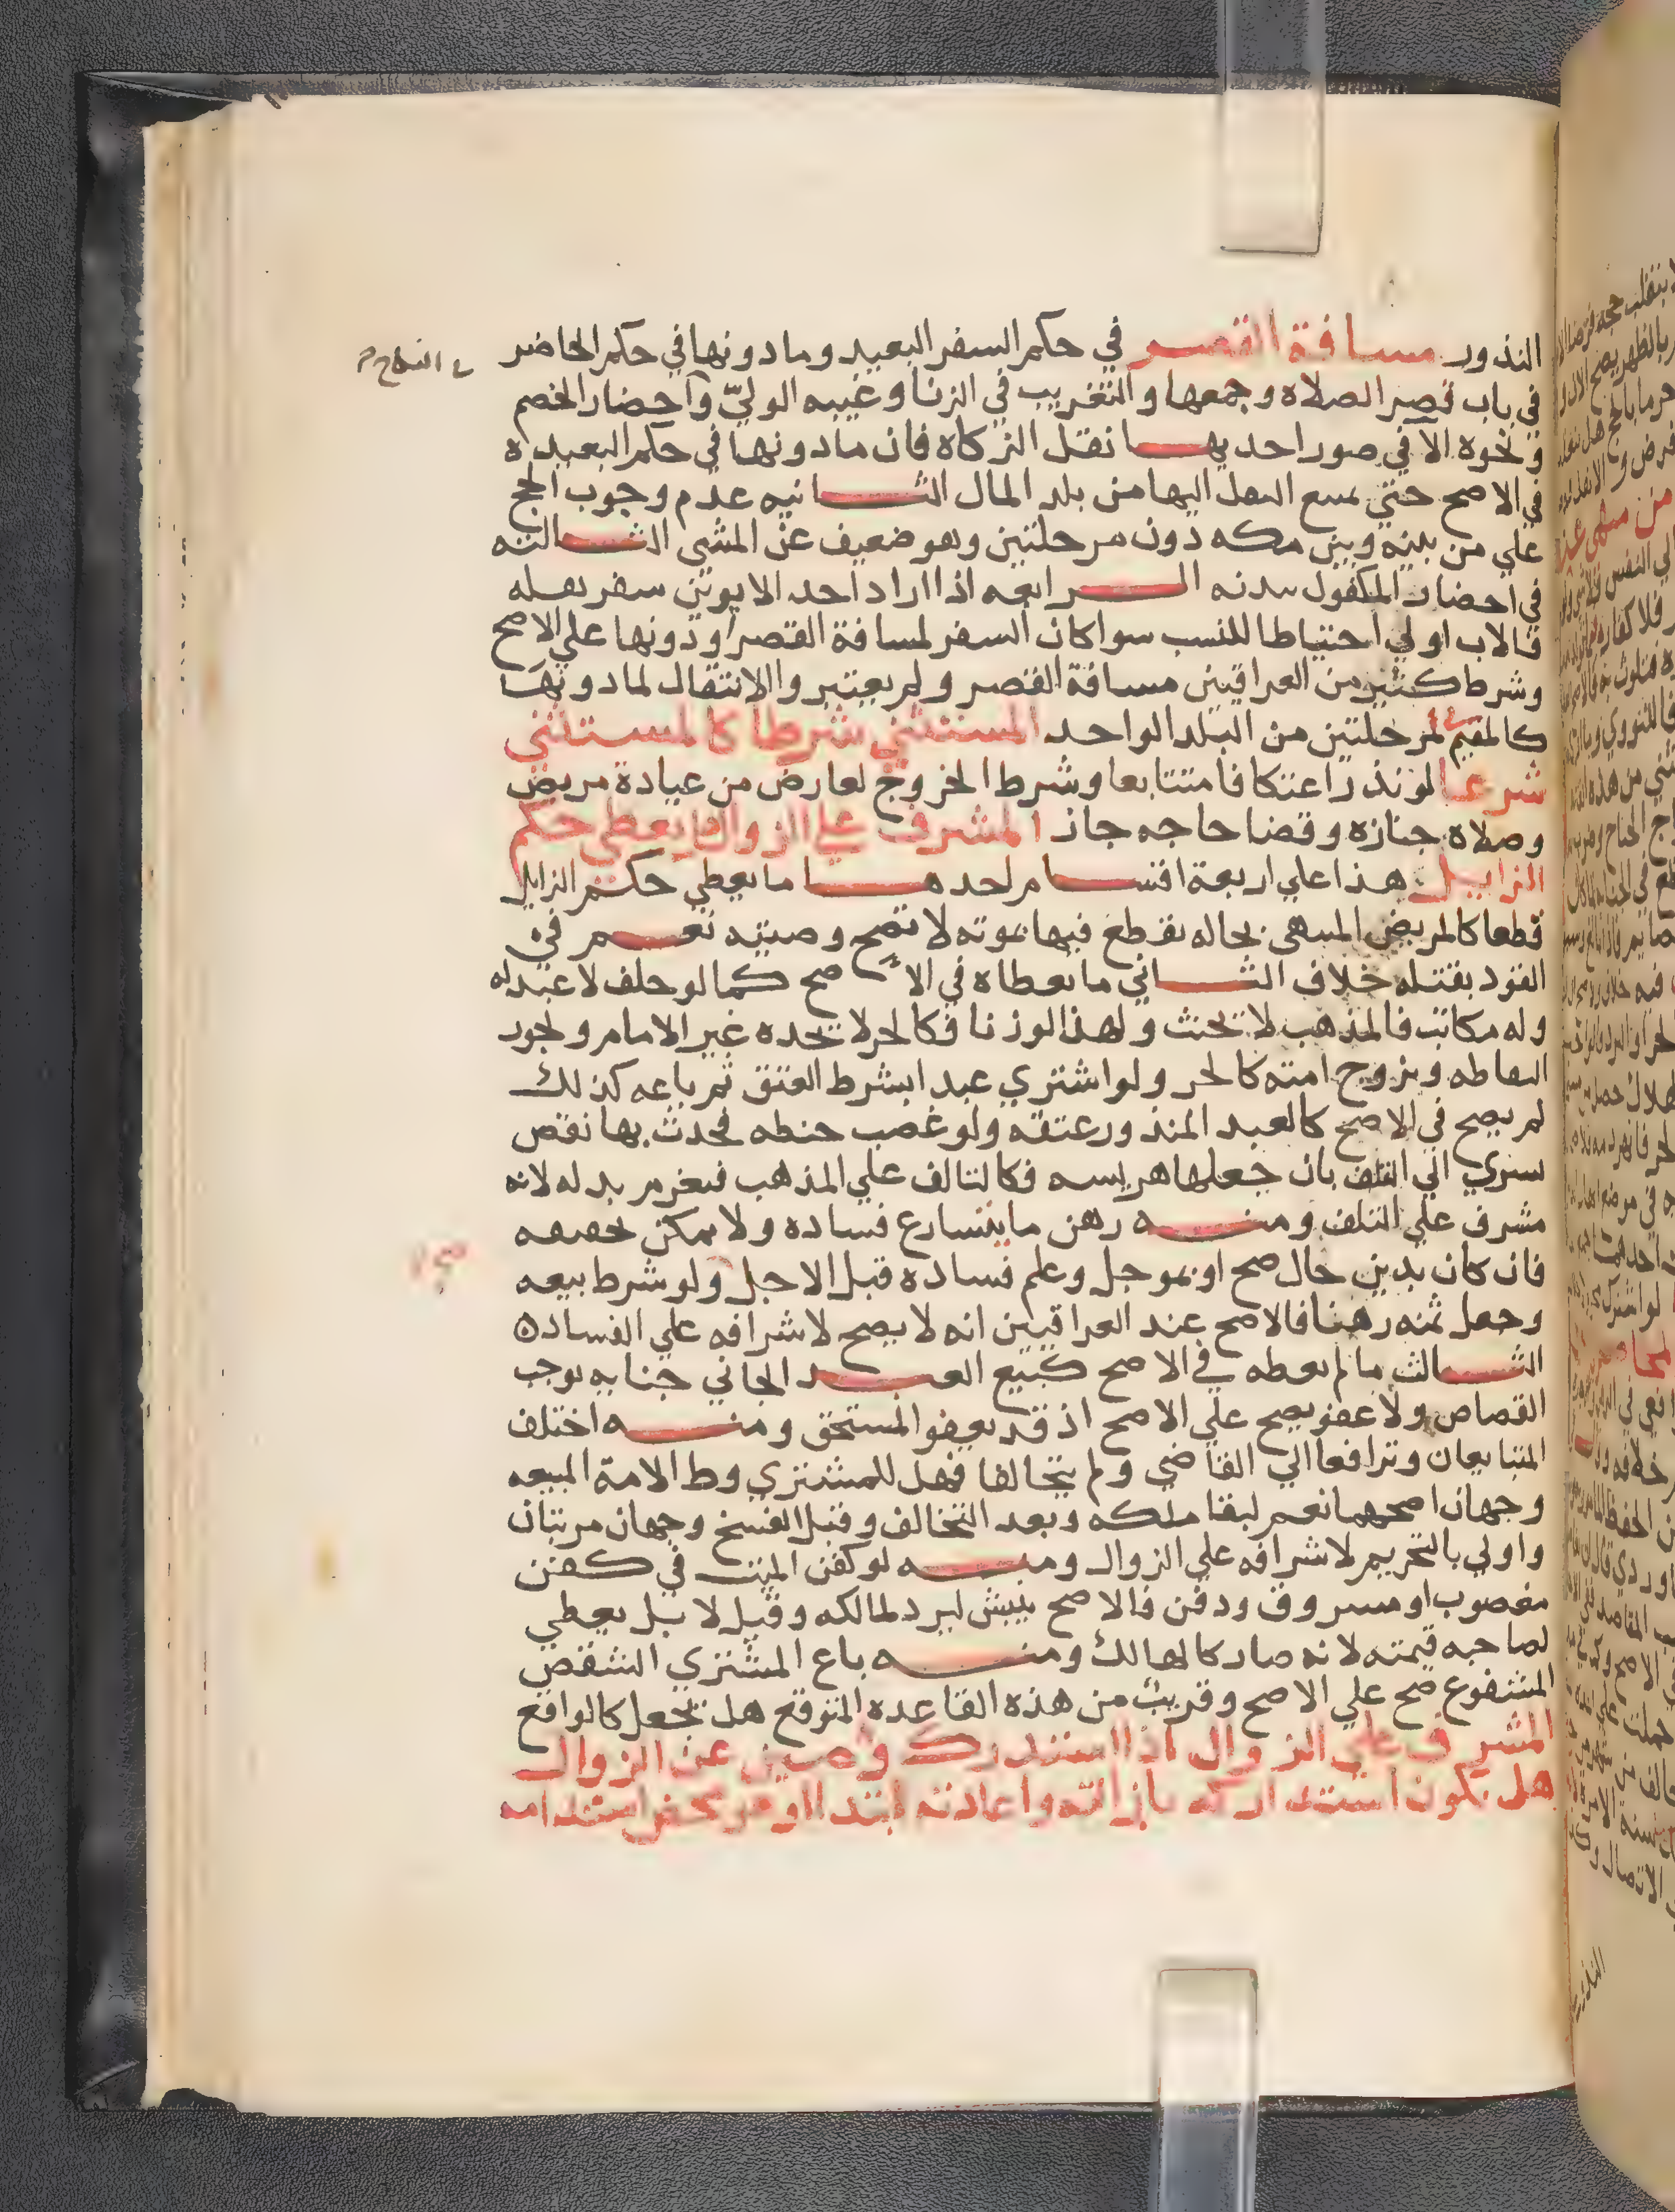 النذور مسافة القصر في حكم السفر البعيد وما دونها في حكم الحاضر
في باب قصر الصلاه وجمعها والتغريب في الزنا وغيبه الوليّ وآحضار الخصم
ونحوه الا في صور احديهـا نقل الزكاه فان مادونها في حكم البعيده
في الاصح حتى يمنع النقل اليها من بلد المال الثـانيه عدم وجوب الحج
علي من بينه وبين مكه دون مرحلتين وهو ضعيف عن المشي الثـالثه
في احضار المكفول ببدنه الـرابعه اذا اراد احد الابوين سفر نقله
فالاب اولي احتياطا للنسب سوا كان السفر لمسافة القصر او دونها علي الاصح
وشرط كثير من العراقيين مسافة القصر ولم يعتبر والانتقال لما دونها
كالمقيم لمرحلتين من البلد الواحد المستثني شرطا كالمستثني
شرعا لو نذر اعتكافا متتابعا وشرط الخروج لعارض من عيادة مريض
وصلاه جنازه وقضا حاجه جاز المشرف علي الزوال يعطي حكم
الزايل هذا علي اربعة اقسـام احدهـا ما يعطي حكم الزايل
قطعا كالمريض المنتهي بحاله نقطع فيها بموته لا تصح وصيته نعـم في
القود بقتله خلاف الثـاني ما يعطاه في الاصح كما لو حلف لا عبد له
وله مكاتب فالمذهب لا تحنث ولهذا لو زنا فكالحر لا يحده غير الامام ولجود
البعاطه ويزوج امته كالحر ولو اشتري عبدا بشرط العتق ثم باعه كذلك
لم يصح في الاصح كالعبد المنذور عتقه ولو غصب حنطه فحدث بها نقص
يسري الي التلف بان جعلها هريسه فكالتالف علي المذهب فيغرم بدله لانه
مشرف علي التلف ومنـه رهن ما يتسارع فساده ولا يمكن تجفيفه
فان كان بدين حال صح او بموجل وعلم فساده قبل الاجل ولو شرط بيعه
وجعل ثمنه رهنا فالاصح عند العراقيين انه لا يصح لاشرافه علي الفساد ه
الثـالث ما لم يعطه في الاصح كبيع العبـد الجاني جنايه توجب
القصاص ولا عفو يصح علي الاصح اذ قد يعفو المستحق ومنـه اختلف
المتبايعان وترافعا الي القاضي ولم يتحالفا فهل للمشتري وط الامة المبيعه
وجهان اصحهما نعم لبقا ملكه وبعد التحالف وقبل الفسخ وجهان مرتبان
واولي بالتحريم لاشرافه علي الزوال ومنـه لو كفن الميت في كفن
مغصوب او مسروق ودفن فالاصح ينبش ليرد لمالكه وقيل لا بل يعطي
لصاحبه قيمته لانه صار كالهالك ومنـه باع المشتري الشقص
المشفوع صح علي الاصح وقريب من هذه القاعده المتوقع هل يجعل كالواقع
المشرف علي الزوال اذا استدرك وصين عن الزوال
هل يكون استدراكه بازالته واعادته ابتدا او هو محض استدامه